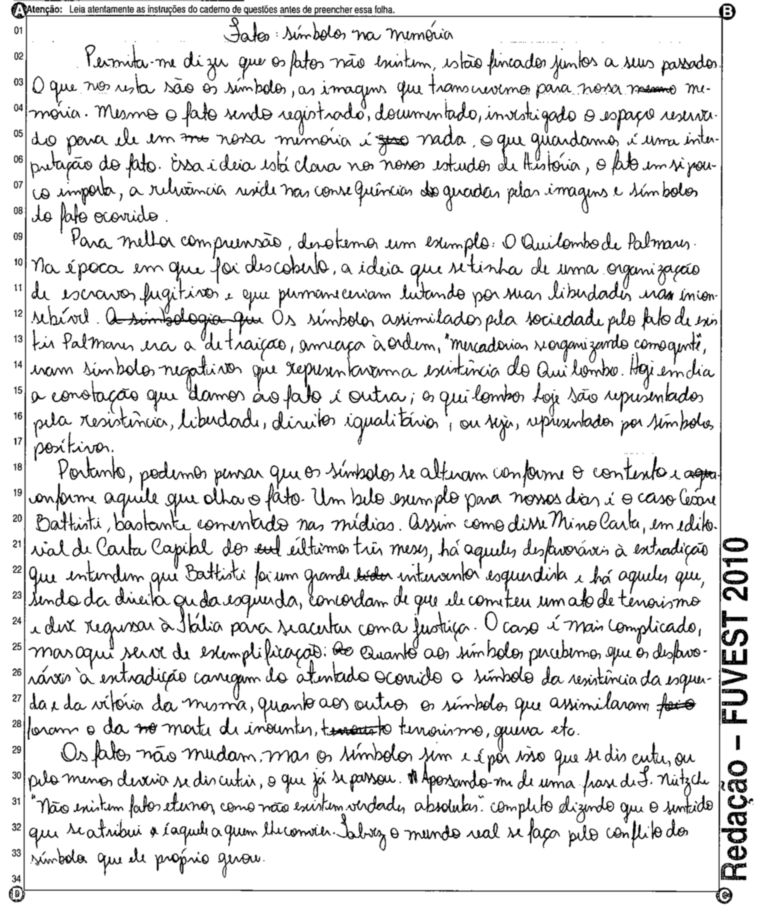 Atenção: Leia atentamente as instruções do caderno de questões antes de preencher essa folha.
A
B
01 Fatos: símbolos na memória
02 Permita-me dizer que os fatos não existem, estão fincados juntos a seus passados.
03 O que nos resta são os símbolos, as imagens que transcrevemos para nossa mesmo me-
04 mória. Mesmo o fato sendo registrado, documentado, investigado o espaço reserva-
05 do para ele em nossa memória é nada, o que guardamos é uma inter-
06 pretação do fato. Essa ideia está clara nos nossos estudos de História, o fato em si pou-
07 co importa, a relevância reside nas consequências geradas pelas imagens e símbolos
08 do fato ocorrido.
09 Para melhor compreensão, denotemos um exemplo: O Quilombo de Palmares.
10 Na época em que foi descoberto, a ideia que se tinha de uma organização
11 de escravos fugitivos e que permaneceriam lutando por suas liberdades era incon-
12 sebível. A simbologia que Os símbolos assimilados pela sociedade pelo fato de exis
13 tir Palmares era a de traição, ameaça à ordem, "mercadorias se organizando como gente",
14 eram símbolos negativos que representavam a existência do Quilombo. Hoje em dia
15 a conotação que damos ao fato é outra; os quilombos hoje são representados
16 pela resistência, liberdade, direitos igualitários, ou seja, representados por símbolos
17 positivos.
18 Portanto, podemos pensar que os símbolos se alteram conforme o contexto e
19 conforme aquele que olha o fato. Um belo exemplo para nossos dias é o caso Cesare
20 Battisti, bastante comentado nas mídias. Assim como disse Mino Carta, em edito-
21 rial de Carta Capital dos últimos três meses, há aqueles desfavoráveis à extradição
22 que entendem que Battisti foi um grande líder interventor esquerdista e há aqueles que,
23 sendo da direita ou da esquerda, concordam de que ele cometeu um ato de terrorismo
24 e deve regressar à Itália para se acertar com a justiça. O caso é mais complicado,
25 mas aqui serve de exemplificação: Quanto aos símbolos percebemos que os desfavo-
26 ráveis à extradição carregam do atentado ocorrido o símbolo da resistência da esquer-
27 da e da vitória da mesma, quanto aos outros os símbolos que assimilaram foi o
28 foram o da morte de inocentes, terrorismo, guerra etc.
29 Os fatos não mudam, mas os símbolos sim e é por isso que se discutiu, ou
30 pelo menos deveria se discutir, o que já se passou. Apossando-me de uma frase de F. Nietzche
31 "Não existem fatos eternos, como não existem verdades absolutas." completo dizendo que o sentido
32 que se atribui é àquele a quem lhe convier. Talvez o mundo real se faça pelo conflito dos
33 símbolos que ele próprio gerou.
34
D
C
Redação – FUVEST 2010